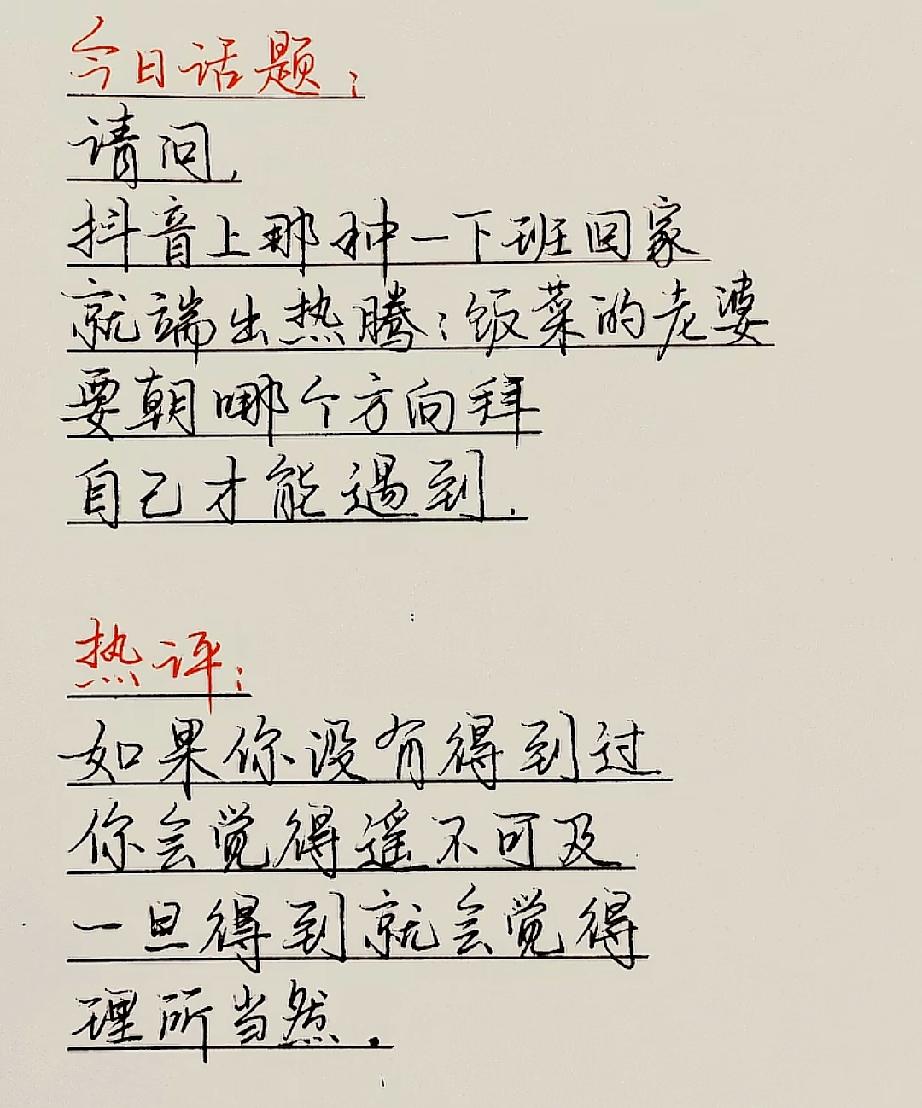 今日话题:
请问,
抖音上那种一下班回家
就端出热腾:饭菜的老婆
要朝哪个方向拜
自己才能遇到.
热评:
如果你没有得到过
你会觉得遥不可及
一旦得到就会觉得
理所当然.